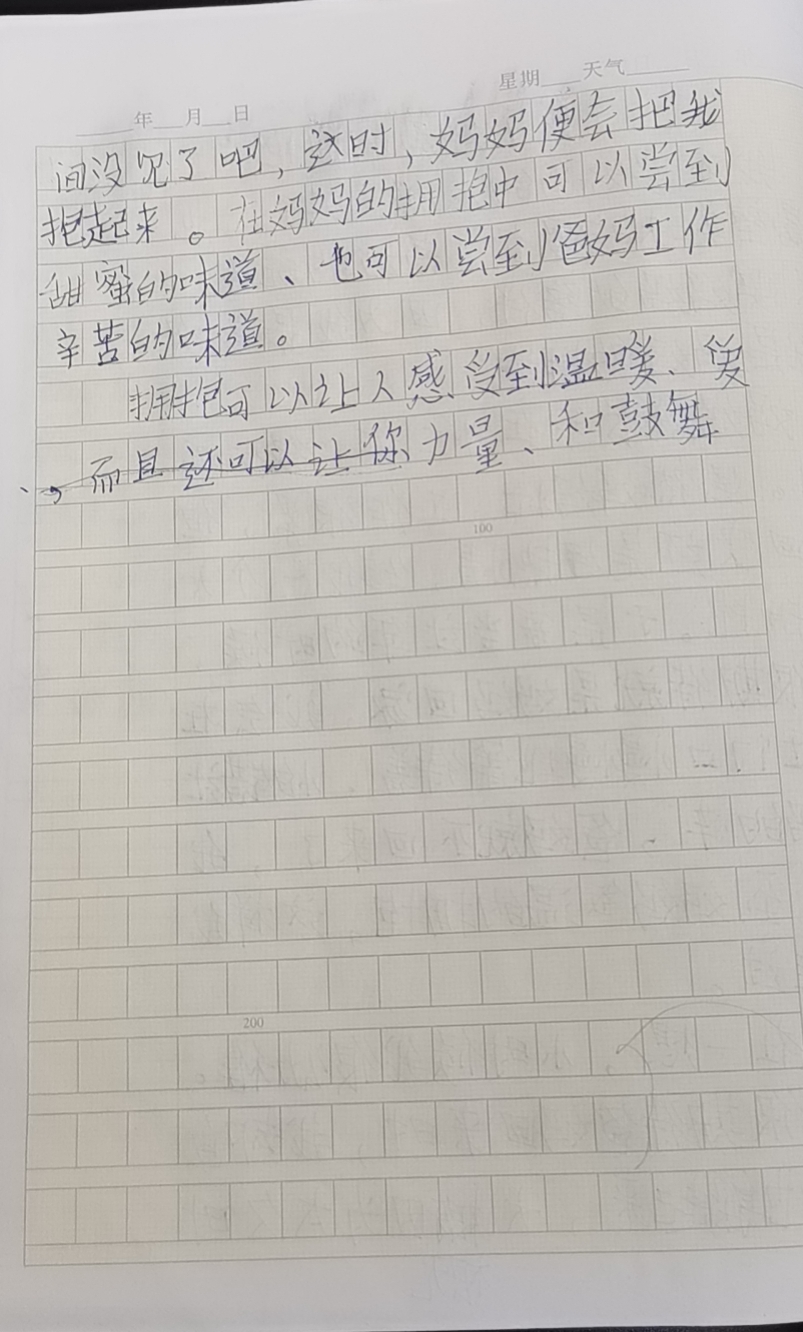 星期 天气
年 月 日
间没见了吧，这时，妈妈便会把我
抱起来。在妈妈的拥抱中可以尝到
甜蜜的味道、也可以尝到爸妈工作
辛苦的味道。
拥抱可以让人感受到温暖、爱
、，而且还可以让你力量、和鼓舞
100
200